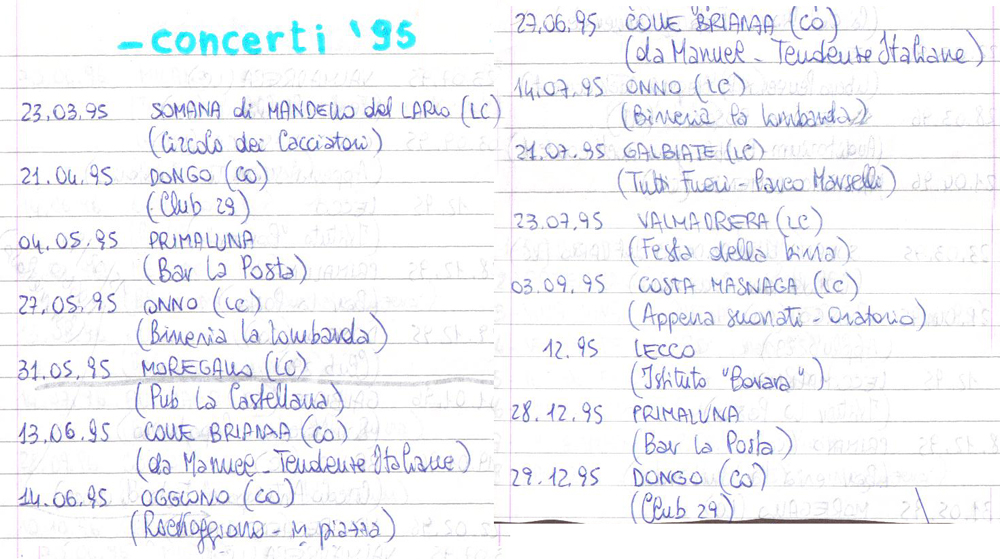 -concerti '95
23.03.95 SOMANA di MANDELLO del LARIO (LC)
(Circolo dei Cacciatori)
21.04.95 DONGO (CO)
(Club 29)
04.05.95 PRIMALUNA
(Bar La Posta)
27.05.95 ONNO (LC)
(Birreria La Lombarda)
31.05.95 MOREGALLO (LC)
(Pub La Castellana)
13.06.95 COLLE BRIANZA (CO)
(da Manuel - Tendenze Italiane)
14.06.95 OGGIONO (CO)
(Rockoggiono - in piazza)
27.06.95 COLLE BRIANZA (CO)
(da Manuel - Tendenze Italiane)
14.07.95 ONNO (LC)
(Birreria la Lombarda)
21.07.95 GALBIATE (LC)
(Tutti Fuori - Parco Marselli)
23.07.95 VALMADRERA (LC)
(Festa della birra)
03.09.95 COSTA MASNAGA (LC)
(Appena suonati - Oratorio)
12.95 LECCO
(Istituto "Bovara")
28.12.95 PRIMALUNA
(Bar la Posta)
29.12.95 DONGO (CO)
(Club 29)